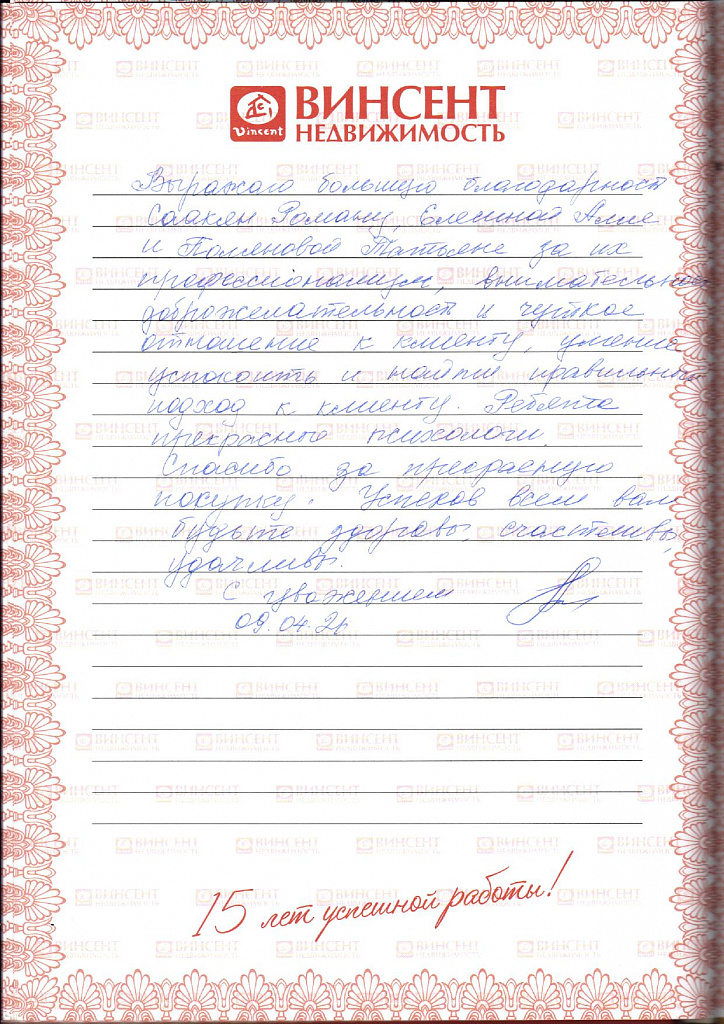 Vincent
ВИНСЕНТ
НЕДВИЖИМОСТЬ
Выражаю большую благодарност
Саакян Роману, Елесиной Алле
и Поляновой Татьяне за их
профессионализм, внимательнос
доброжелательност и чуткое
отношение к клиенту, умение
успокоить и найти правильный
подход к клиенту. Ребята
прекрасные психологи.
Спасибо за
покупку. Успехов всем вам
будьте здоровы, счастливы,
удачливы.
С уважением
09.04.21
15 лет успешной работы!